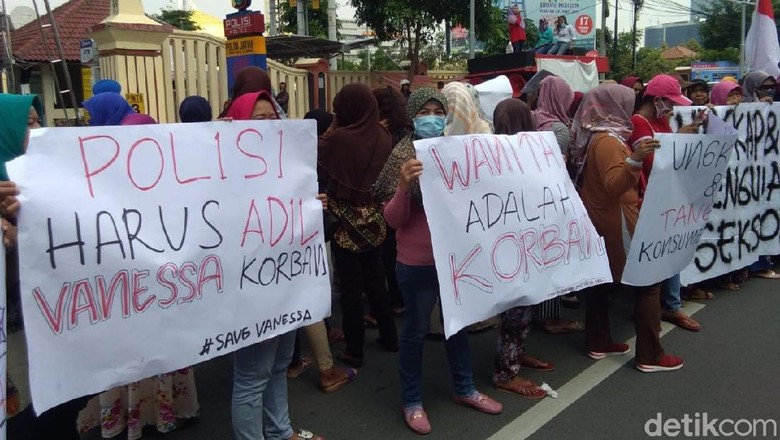 POLISI
POLISI
HARUS ADIL
VANESSA KORBAN
#SAVE VANESSA
WANITA
ADALAH
KORBAN
UNGK
&
KONSUM
KAP&
SEKS
17
detikcom